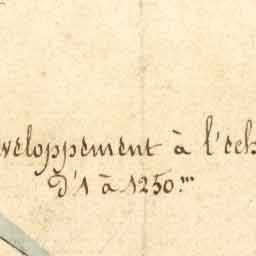 veloppement à l'ech
D'1 à 1250.m